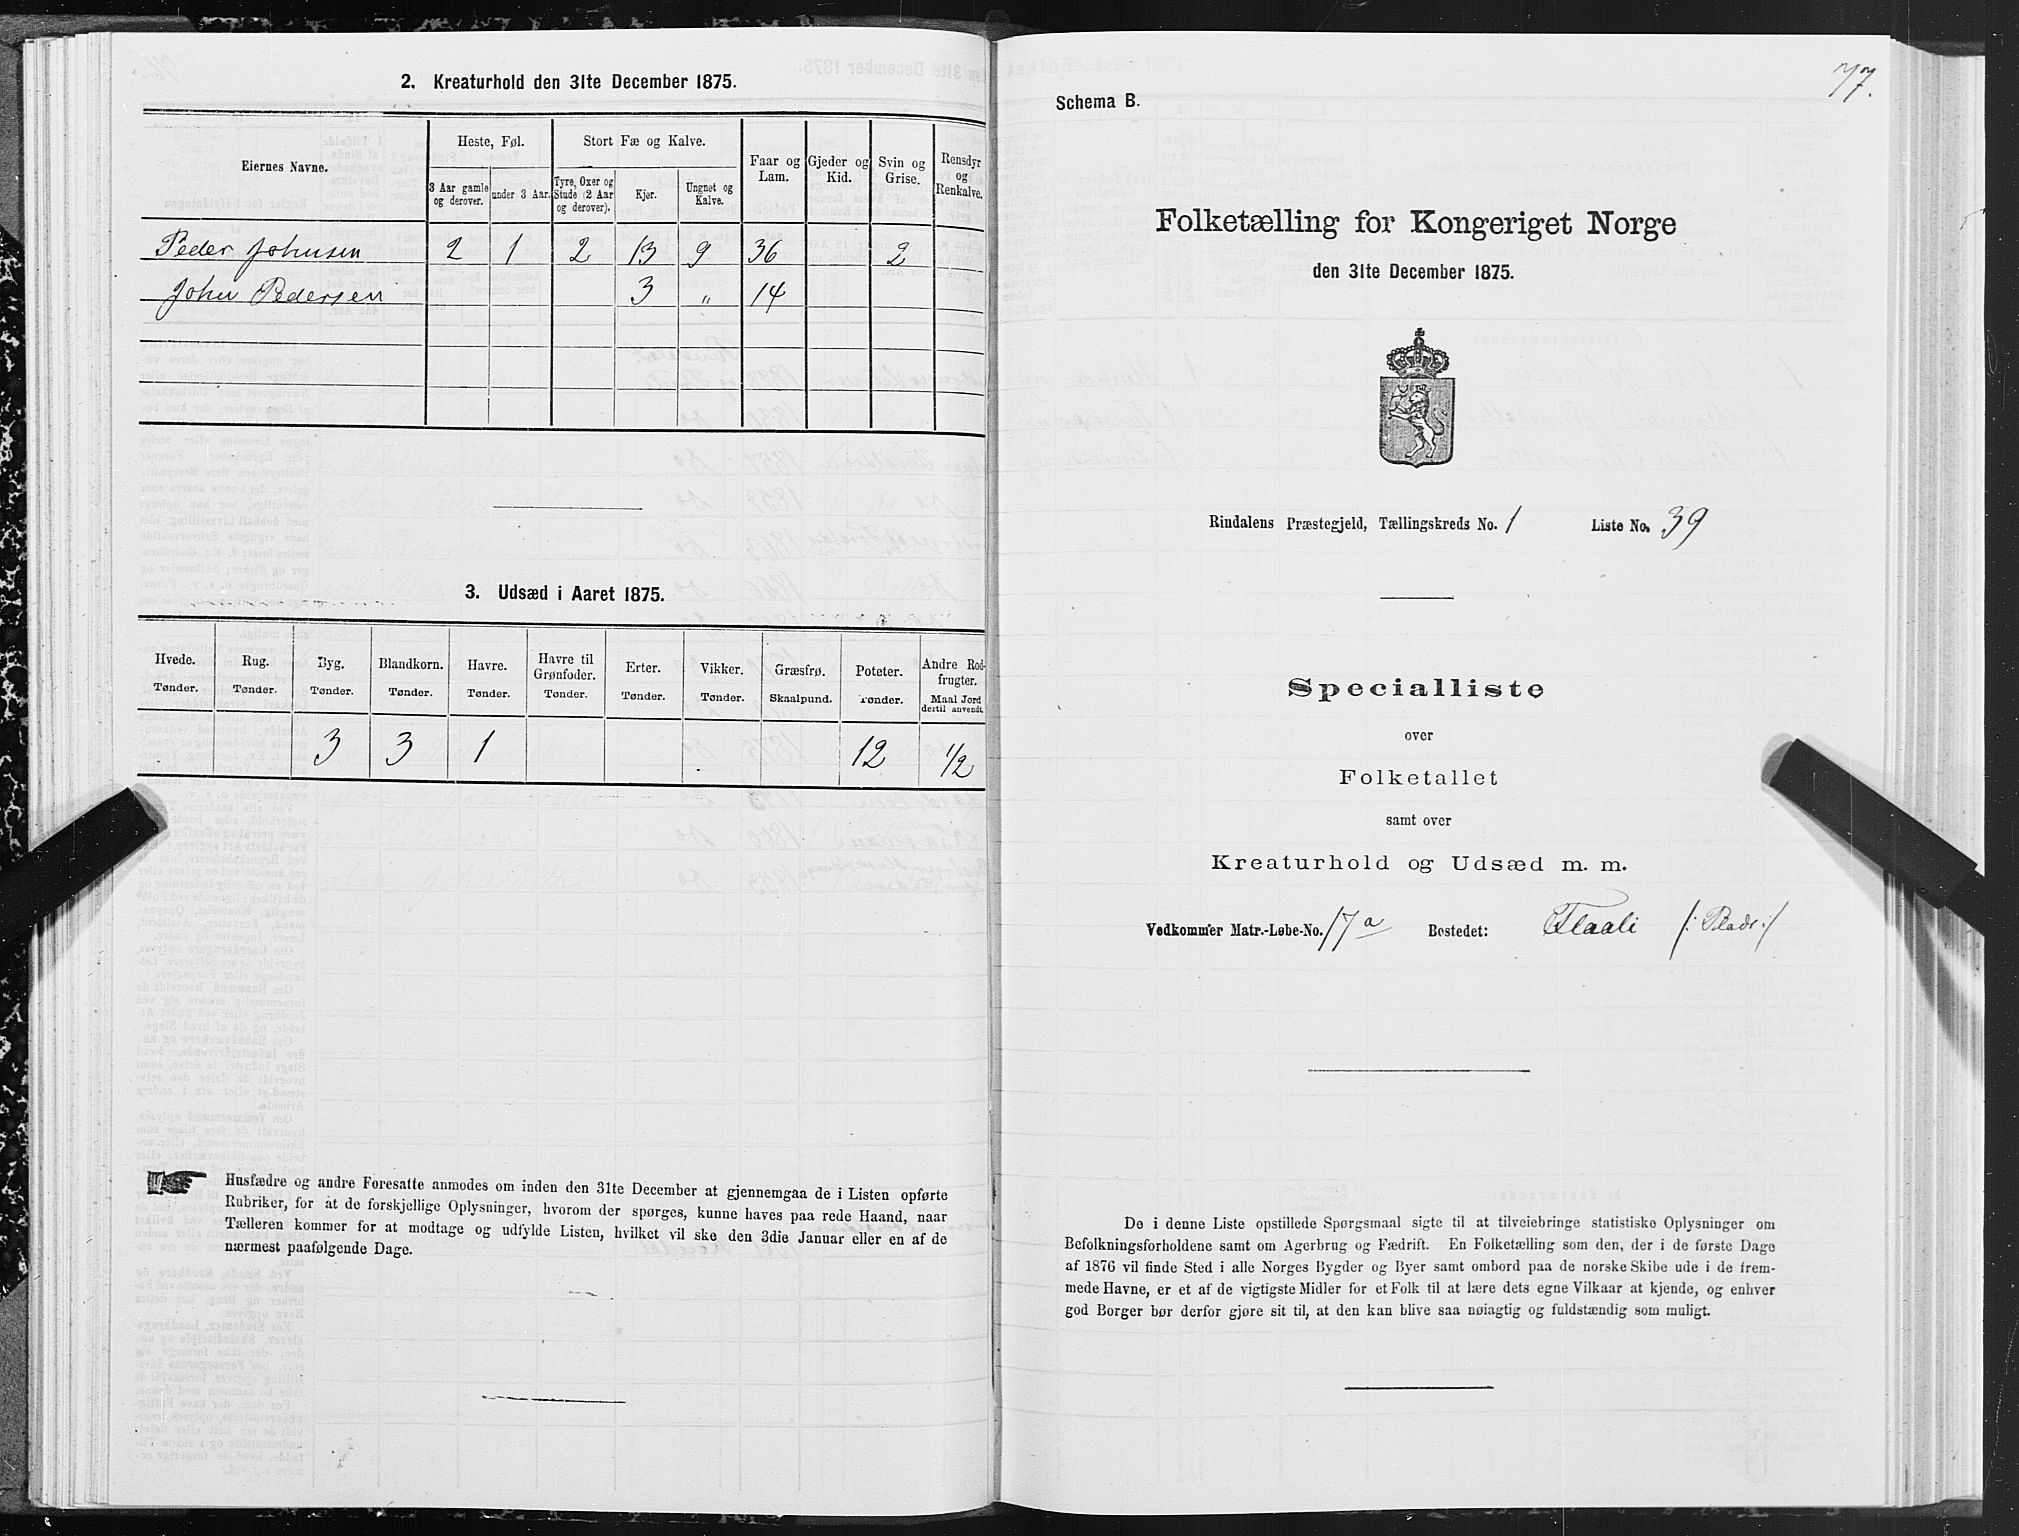 2. Kreaturhold den 31te December 1875.
Eiernes Navne.
Heste, Føl.
Stort Fæ og Kalve.
Faar og Lam.
Gjeder og Kid.
Svin og Grise.
Rensdyr og Renkalve.
3 Aar gamle og derover.
under 3 Aar.
Tyre, Oxer og Stude (2 Aar og derover).
Kjør.
Ungnøt og Kalve.
Peder Johnsen 2 1 2 13 9 36 2
John Pedersen 3 " 14
3. Udsæd i Aaret 1875.
Hvede. Rug. Byg. Blandkorn. Havre. Havre til Grønfoder. Erter. Vikker. Græsfrø. Poteter. Andre Rodfrugter.
Tønder. Tønder. Tønder. Tønder. Tønder. Tønder. Tønder. Tønder. Skaalpund. Tønder. Maal Jord dertil anvendt.
3 3 1 12 1/2
Husfædre og andre Foresatte anmodes om inden den 31te December at gjennemgaa de i Listen opførte
Rubriker, for at de forskjellige Oplysninger, hvorom der spørges, kunne haves paa rede Haand, naar
Tælleren kommer for at modtage og udfylde Listen, hvilket vil ske den 3die Januar eller en af de
nærmest paafølgende Dage.
77.
Schema B.
Folketælling for Kongeriget Norge
den 31te December 1875.
Rindalens Præstegjeld, Tællingskreds No. 1 Liste No. 39
Specialliste
over
Folketallet
samt over
Kreaturhold og Udsæd m. m.
Vedkommer Matr.-Løbe-No. 17a Bostedet: Flaali /: Plads :/
De i denne Liste opstillede Spørgsmaal sigte til at tilveiebringe statistiske Oplysninger om
Befolkningsforholdene samt om Agerbrug og Fædrift. En Folketælling som den, der i de første Dage
af 1876 vil finde Sted i alle Norges Bygder og Byer samt ombord paa de norske Skibe ude i de frem-
mede Havne, er et af de vigtigste Midler for et Folk til at lære dets egne Vilkaar at kjende, og enhver
god Borger bør derfor gjøre sit til, at den kan blive saa nøiagtig og fuldstændig som muligt.